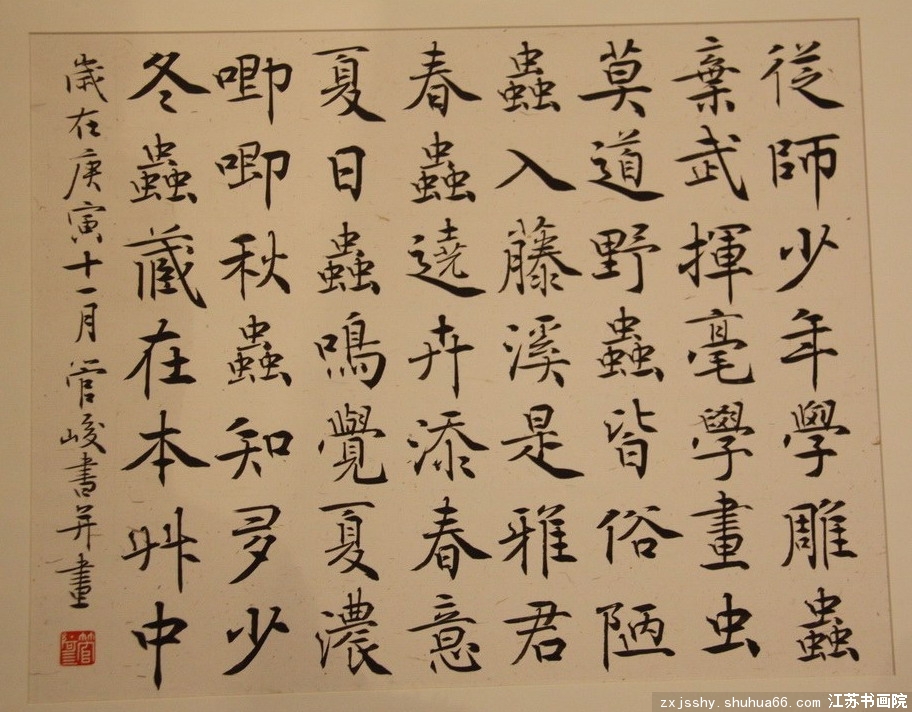 從師少年學雕蟲
棄武揮毫學畫虫
莫道野蟲皆俗陋
蟲入藤溪是雅君
春蟲遶卉添春意
夏日蟲鳴覺夏濃
唧唧秋蟲知多少
冬蟲藏在本艸中
歲在庚寅十一月管峻書并畫
zxjsshy.shuhua66.com 江苏书画院